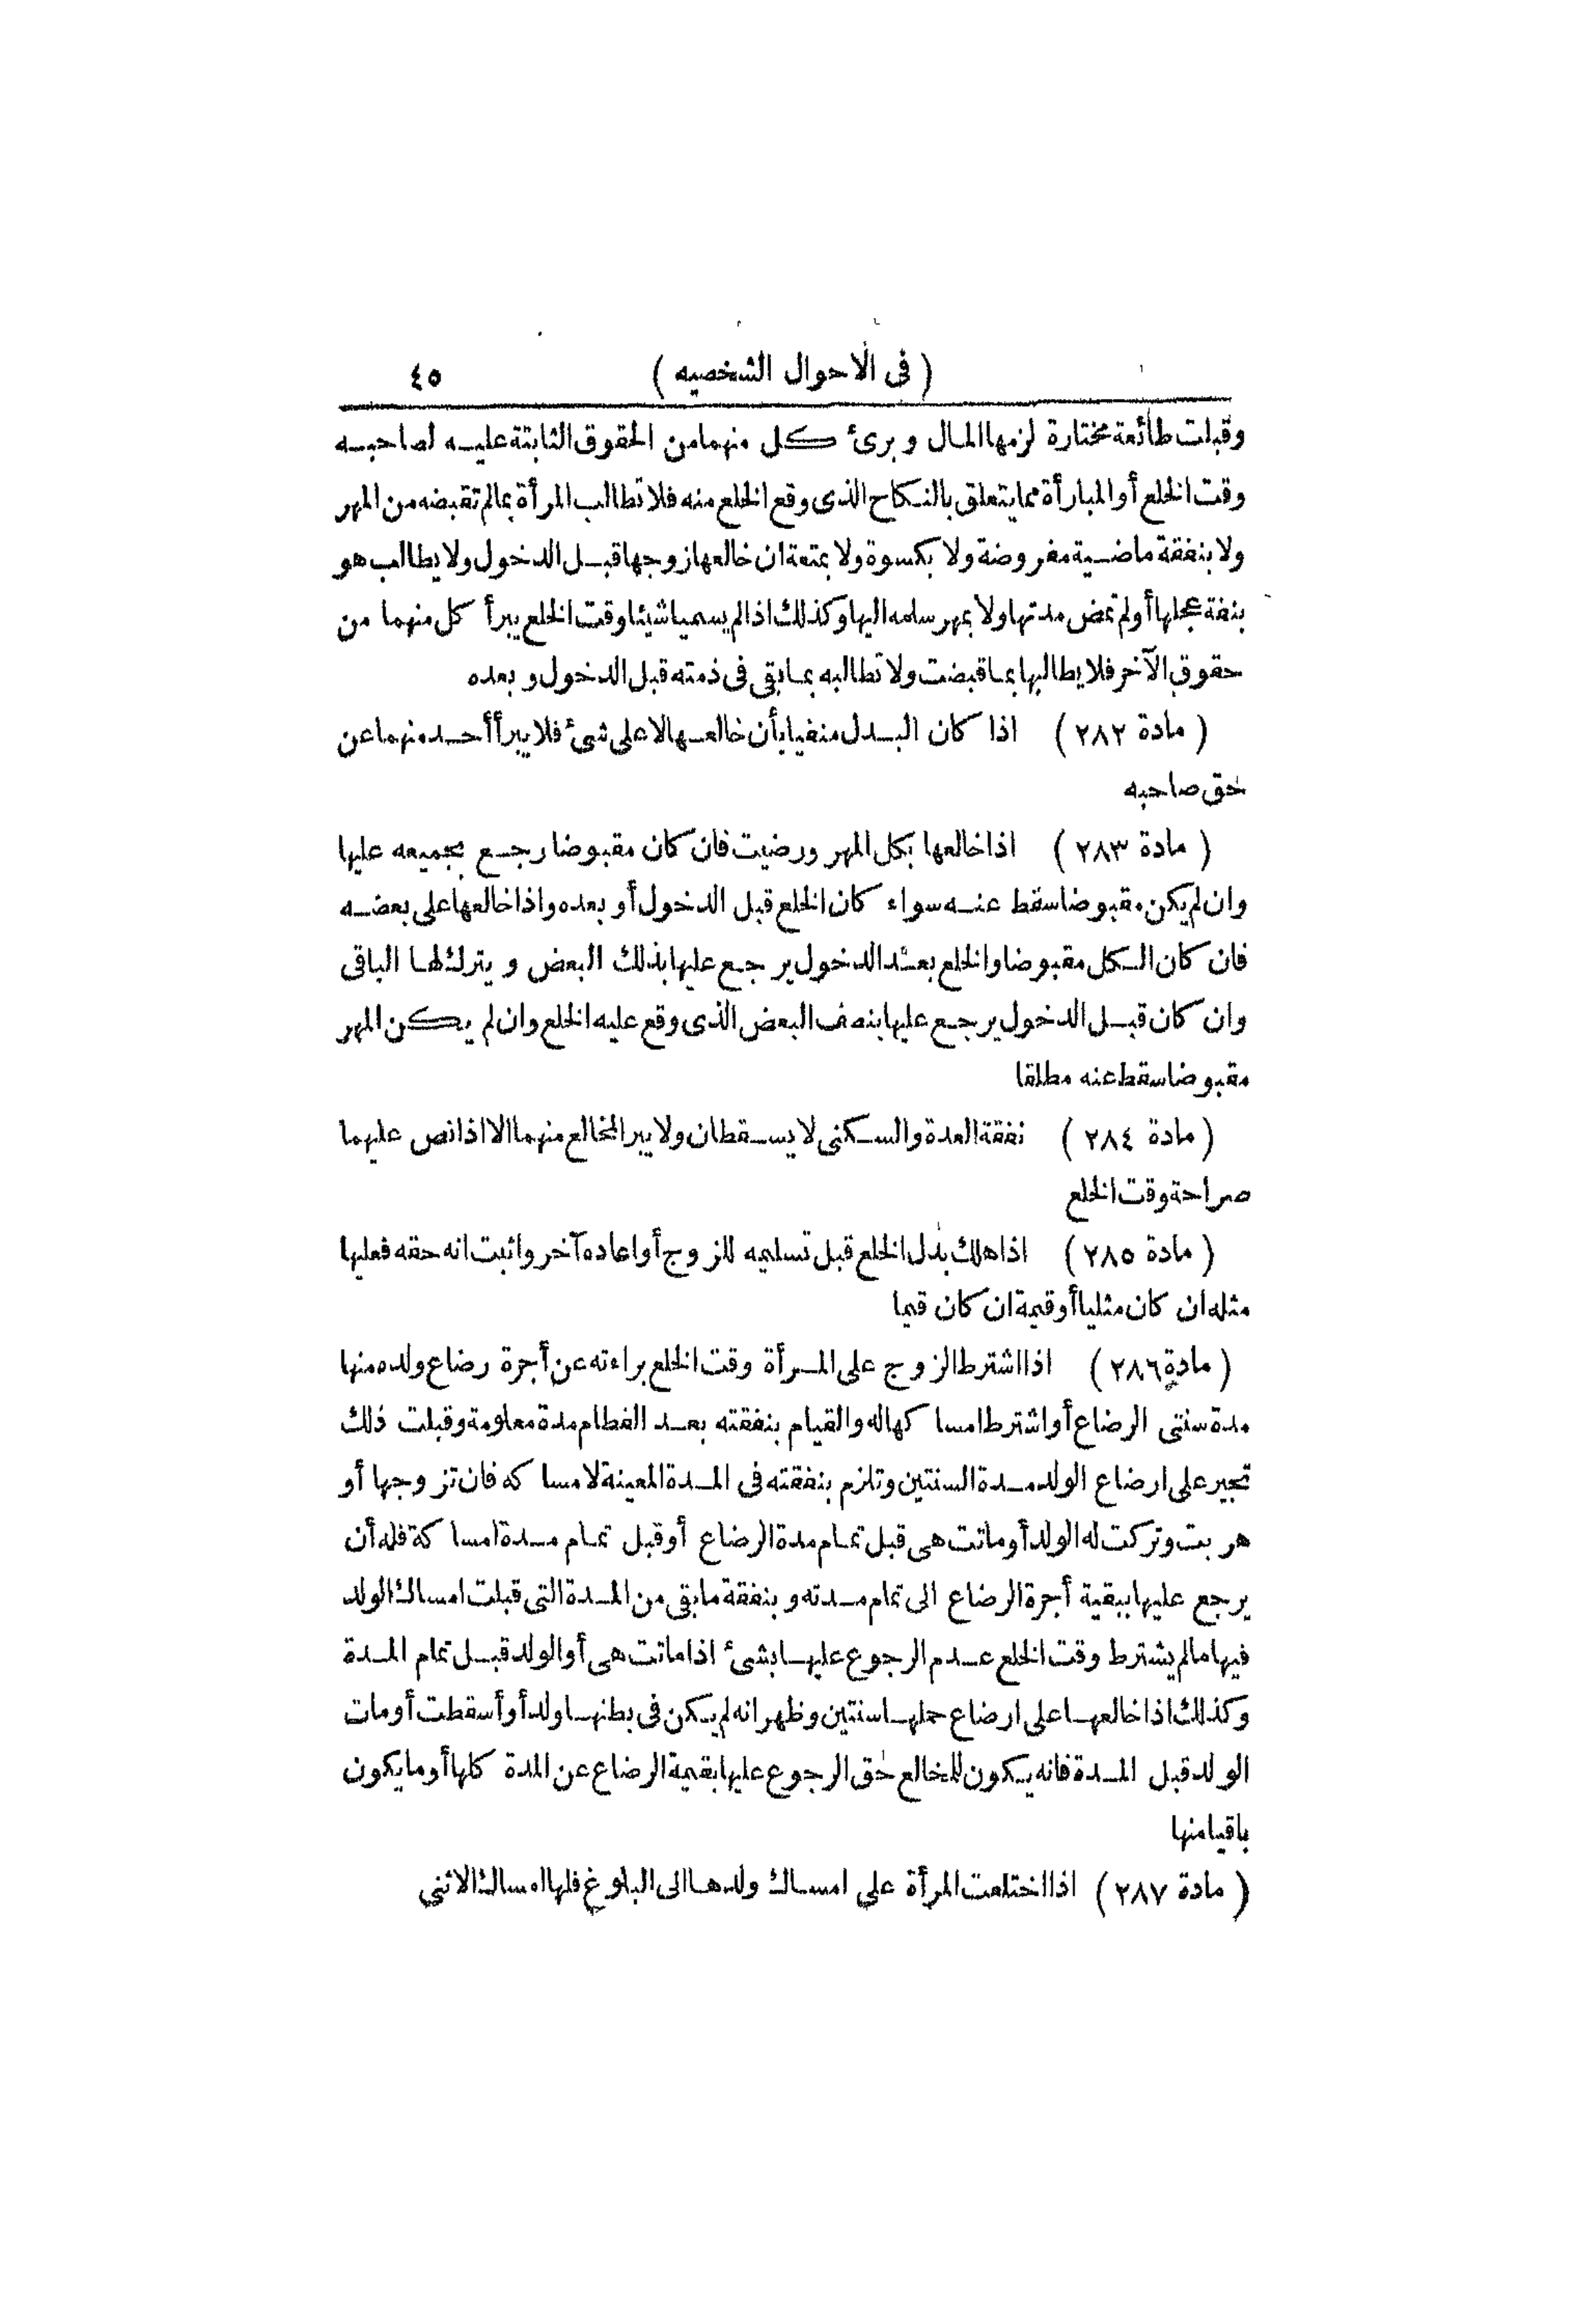 ( فى الاحوال الشخصيه ) ٤٥
وقبلت طائعة مختارة لزمها المال و برئ كل منهما من الحقوق الثابتة عليه لصاحبه
وقت الخلع أو المبارأة مما يتعلق بالنكاح الذى وقع الخلع منه فلا تطالب المرأة بما لم تقبضه من المهر
ولا بنفقة ماضية مفروضة ولا بكسوة ولا بمتعة ان خالعها زوجها قبل الدخول ولا يطالب هو
بنفة عجلها أولم تمض مدتها ولا بمهر سلمه اليها وكذلك اذا لم يسميا شيئا وقت الخلع يبرأ كل منهما من
حقوق الآخر فلا يطالبها بما قبضت ولا تطالبه بما بقى فى ذمته قبل الدخول و بعده
( مادة ٢٨٢ ) اذا كان البدل منفيا بأن خالعها لا على شئ فلا يبرأ أحد منهما عن
حق صاحبه
( مادة ٢٨٣ ) اذا خالعها بكل المهر ورضيت فان كان مقبوضا رجع بجميعه عليها
وان لم يكن مقبوضا سقط عنه سواء كان الخلع قبل الدخول أو بعده واذا خالعها على بعضه
فان كان الكل مقبوضا والخلع بعد الدخول يرجع عليها بذلك البعض و يترك لها الباقى
وان كان قبل الدخول يرجع عليها بنصف البعض الذى وقع عليه الخلع وان لم يكن المهر
مقبوضا سقط عنه مطلقا
( مادة ٢٨٤ ) نفقة العدة والسكنى لا يسقطان ولا يبر المخالع منهما الا اذا نص عليهما
صراحة وقت الخلع
( مادة ٢٨٥ ) اذا هلك بدل الخلع قبل تسليمه للزوج أو اعاده آخر واثبت انه حقه فعليها
مثله ان كان مثليا أو قيمة ان كان قيما
( مادة ٢٨٦ ) اذا اشترط الزوج على المرأة وقت الخلع براءته عن أجرة رضاع ولده منها
مدة سنتى الرضاع أو اشترط امساكها له والقيام بنفقته بعد الفطام مدة معلومة وقبلت ذلك
تجبر على ارضاع الولد مدة السنتين وتلزم بنفقته فى المدة المعينة لامساكه فان تزوجها أو
هربت وتركت له الولد أو ماتت هى قبل تمام مدة الرضاع أو قبل تمام مدة امساكة فله أن
يرجع عليها ببقية أجرة الرضاع الى تمام مدته و بنفقة ما بقى من المدة التى قبلت امساك الولد
فيها ما لم يشترط وقت الخلع عدم الرجوع عليها بشئ اذا ماتت هى أو الولد قبل تمام المدة
وكذلك اذا خالعها على ارضاع حملها سنتين وظهر انه لم يكن فى بطنها ولد أو أسقطت أو مات
الولد قبل المدة فانه يكون للمخالع حق الرجوع عليها بقيمة الرضاع عن المدة كلها أو ما يكون
باقيا منها
( مادة ٢٨٧ ) اذا اختلعت المرأة على امساك ولدها الى البلوغ فلها امساك الانثى